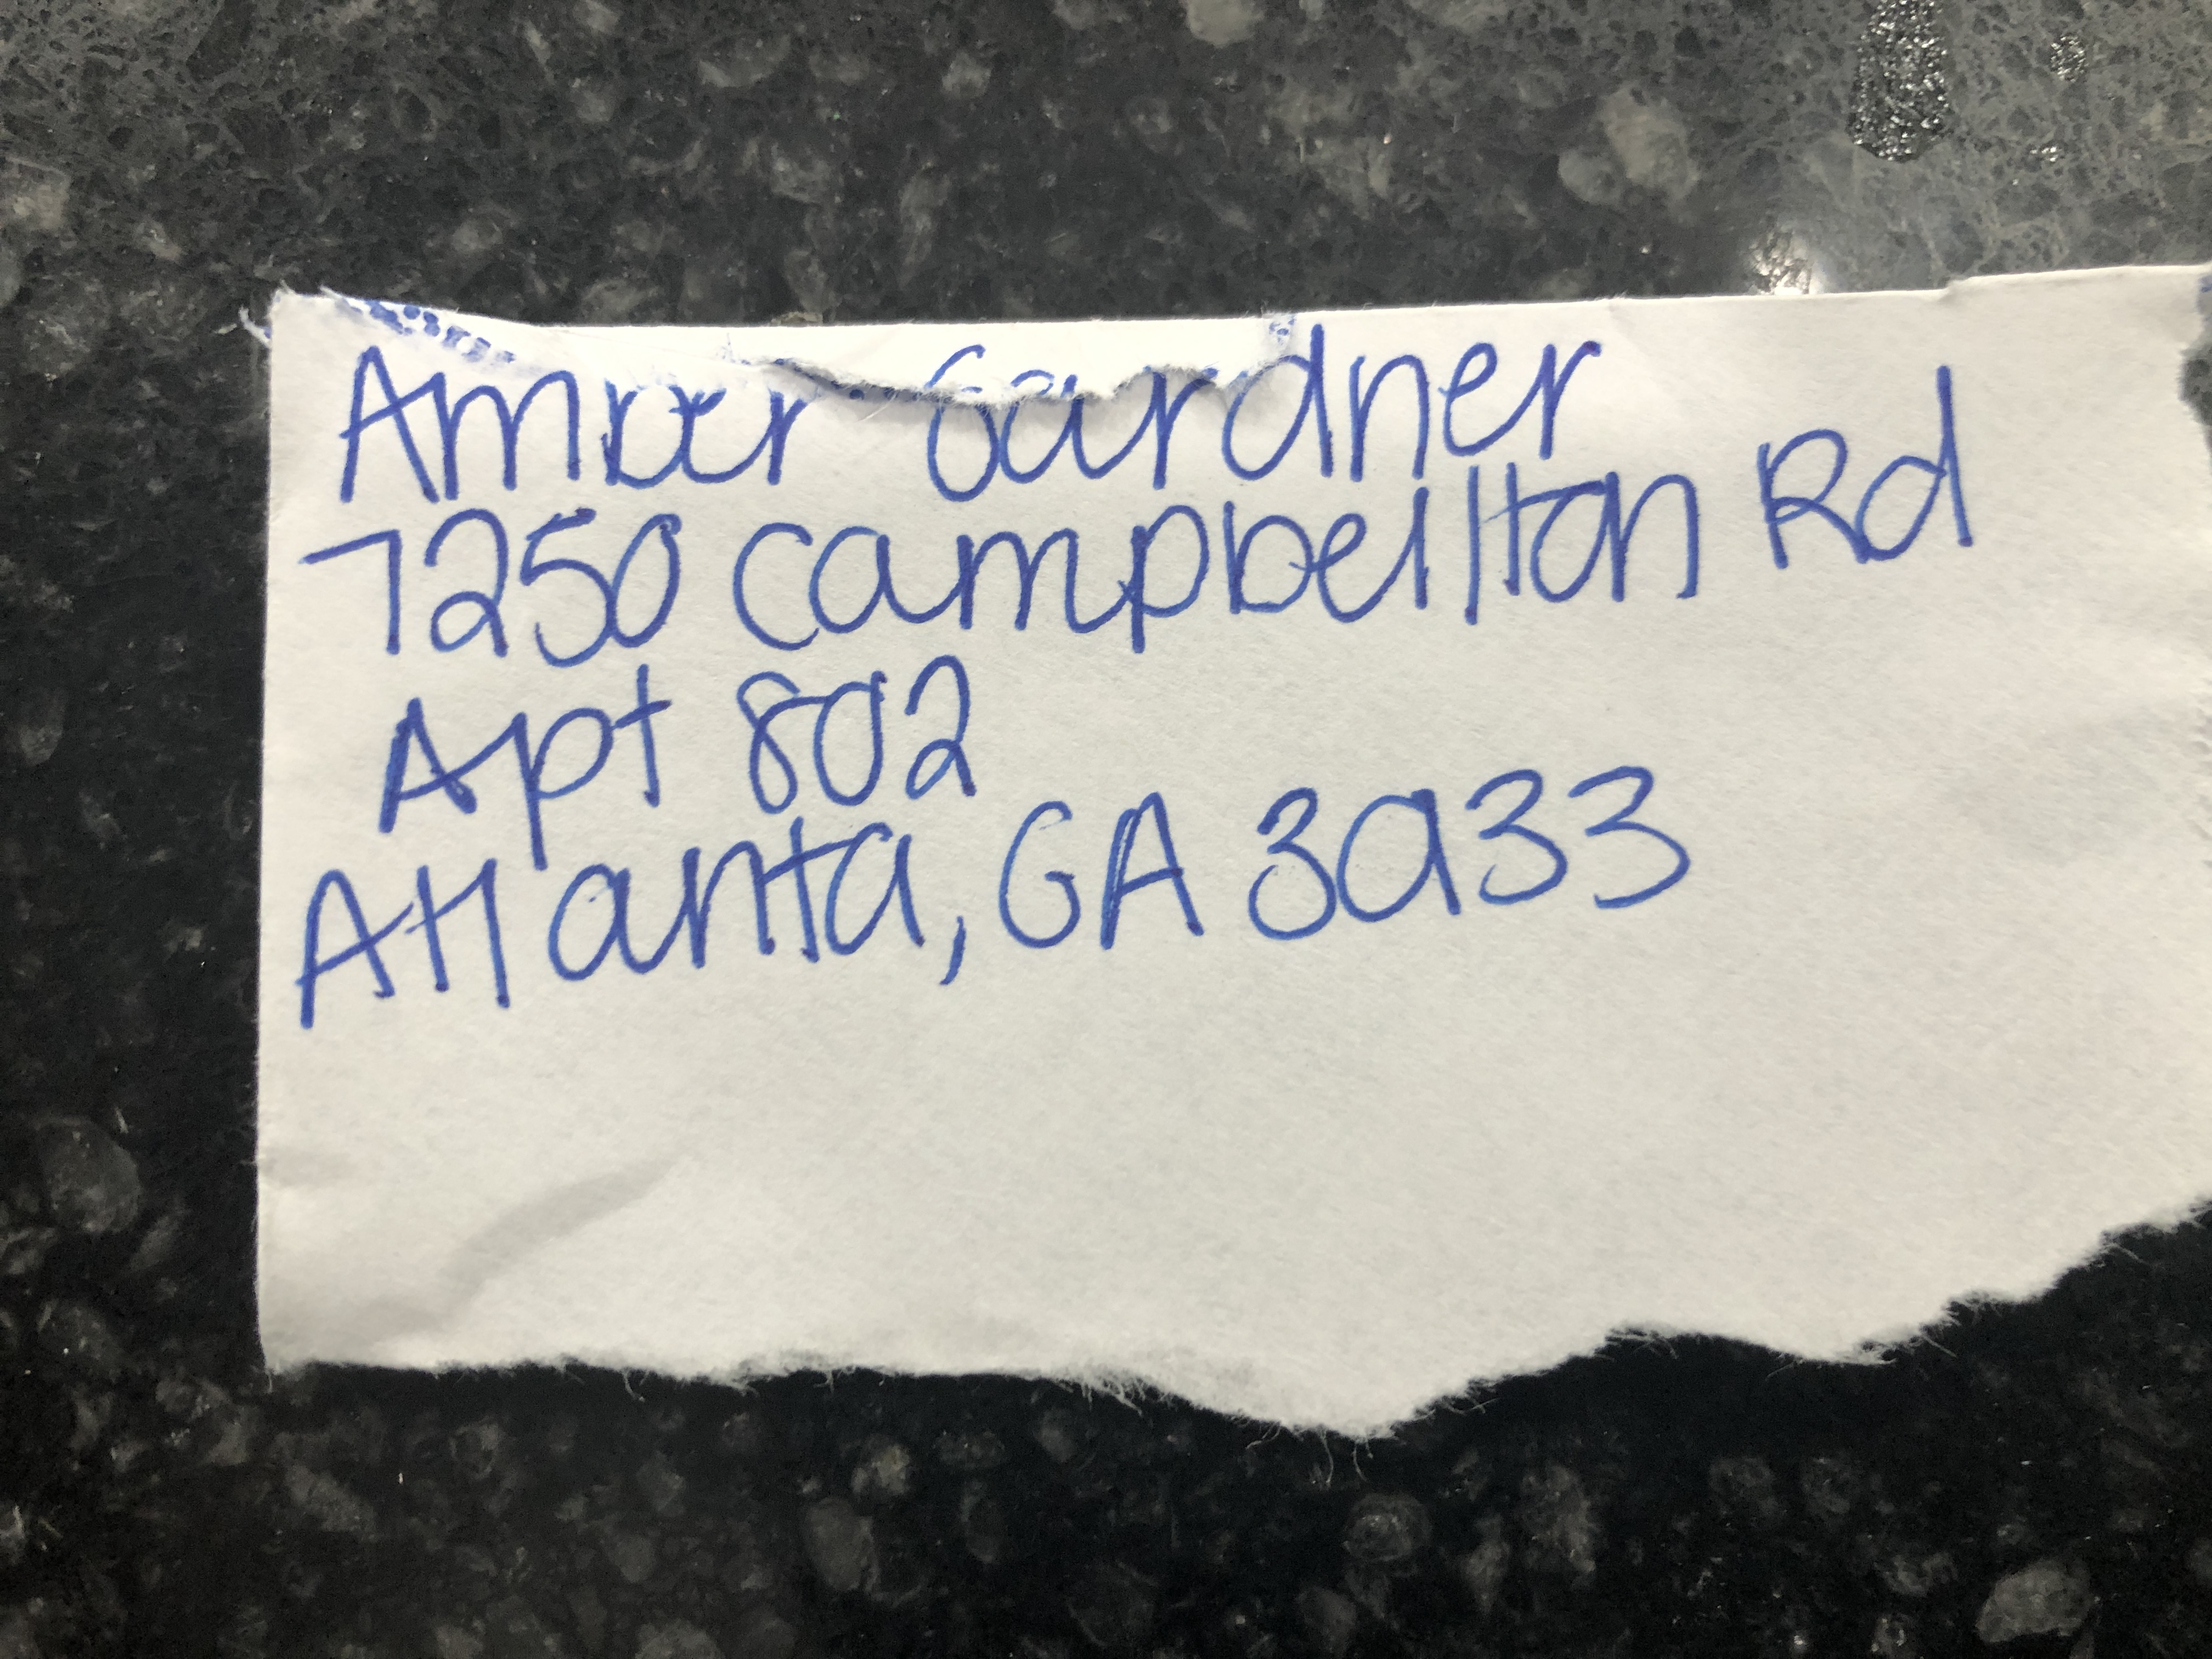 Amber Gardner
7250 campbellton Rd
Apt 802
Atlanta, GA 30133